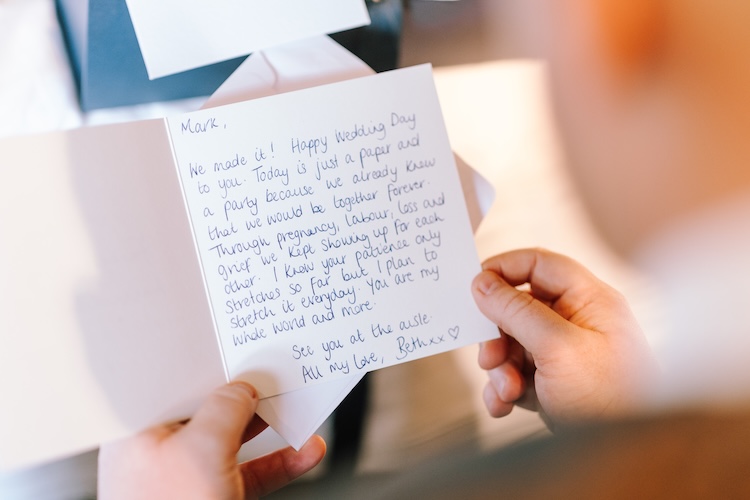 Mark,
We made it! Happy Wedding Day
to you. Today is just a paper and
a party because we already know
that we would be together forever.
Through pregnancy, labour, loss and
grief we kept showing up for each
other. I know your patience only
stretches so far but I plan to
stretch it everyday. You are my
whole world and more.
See you at the aisle.
All my love, Bethxx ♡